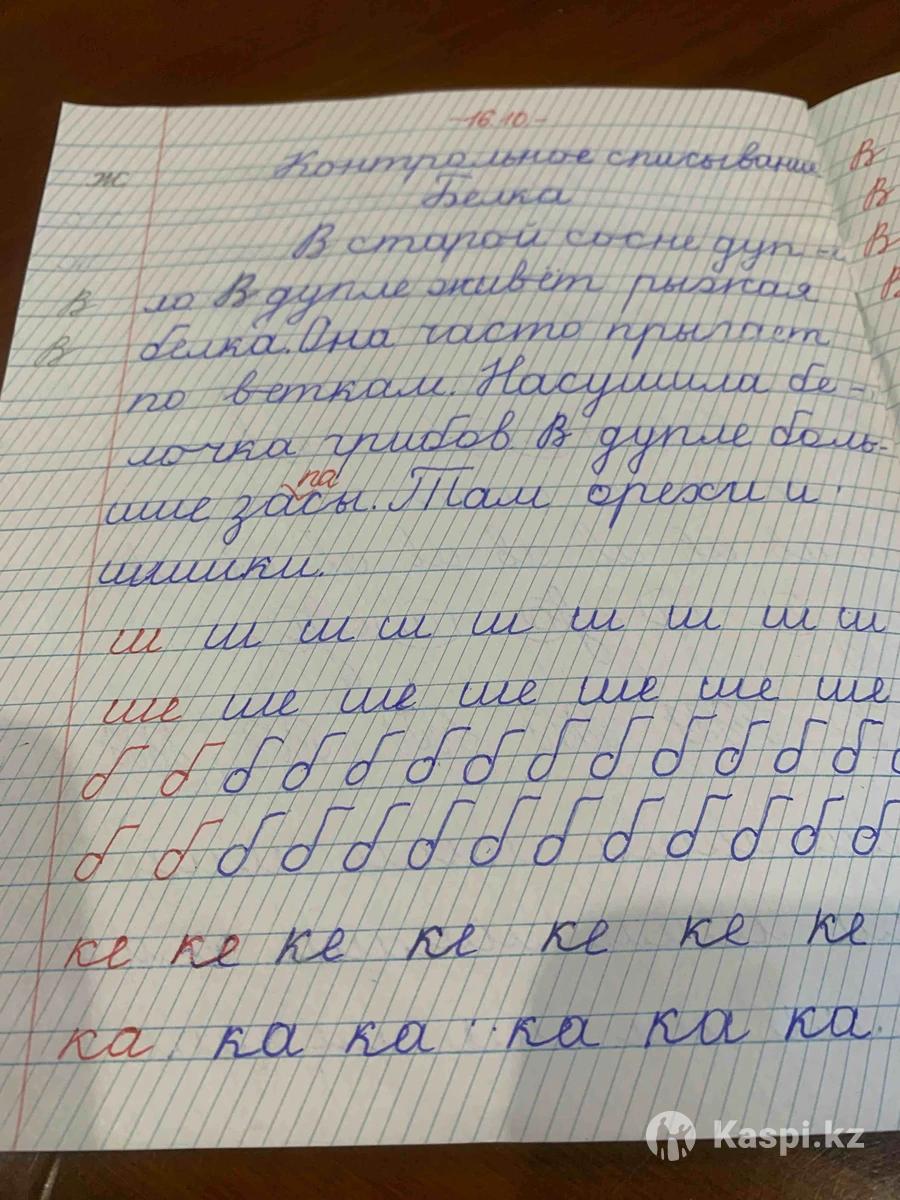 -16.10-
Контрольное списывание
Белка
В старой сосне дуп-
ло В дупле живёт рыжая
белка. Она часто прыгает
по веткам. Насушила бе-
лочка грибов В дупле боль-
шие засы. Там орехи и
па
шишки.
ш ш ш ш ш ш ш ш ш
ше ше ше ше ше ше ше
б б б б б б б б б б б б б б
б б б б б б б б б б б б б
ке ке ке ке ке ке ке
ка ка ка ка ка ка
ж
В
В
В
В
В
В
Kaspi.kz